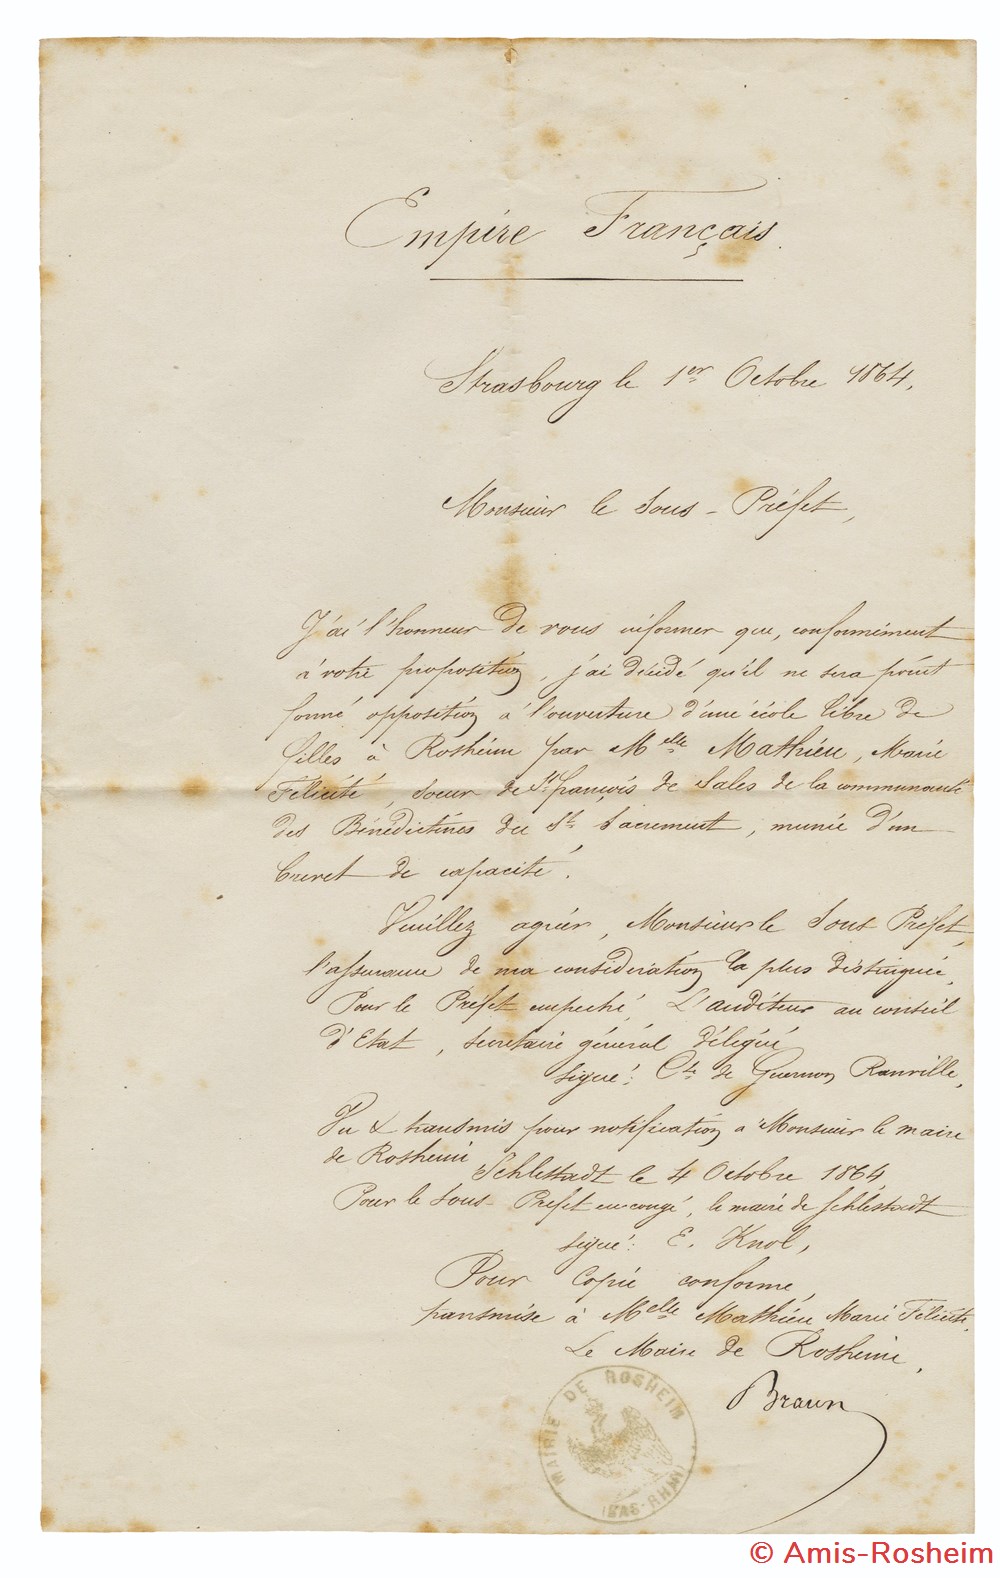 Empire Français.
Strasbourg le 1er Octobre 1864,
Monsieur le Sous-Préfet,
J'ai l'honneur de vous informer que, conformément
à votre proposition, j'ai décidé qu'il ne sera point
formé opposition à l'ouverture d'une école libre de
filles à Rosheim par Melle Mathieu, Marie
Félicité, Soeur de St. François de Sales de la communauté
des Bénédictines du St. Sacrement, munie d'un
brevet de capacité.
Veuillez agréer, Monsieur le Sous Préfet,
l'assurance de ma considération la plus distinguée,
Pour le Préfet empeché, L'auditeur au conseil
d'Etat, secrétaire général délégué
signé: Cte. de Guernon Ranville,
Vu & transmis pour notification à Monsieur le maire
de Rosheim
Schlestadt le 4 Octobre 1864
Pour le Sous-Préfet en congé, le maire de Schlestadt
signé: E. Knol,
Pour Copie conforme,
transmise à Melle Mathieu Marie Félicité,
Le Maire de Rosheim,
Braun
MAIRIE DE ROSHEIM
(BAS-RHIN)
© Amis-Rosheim